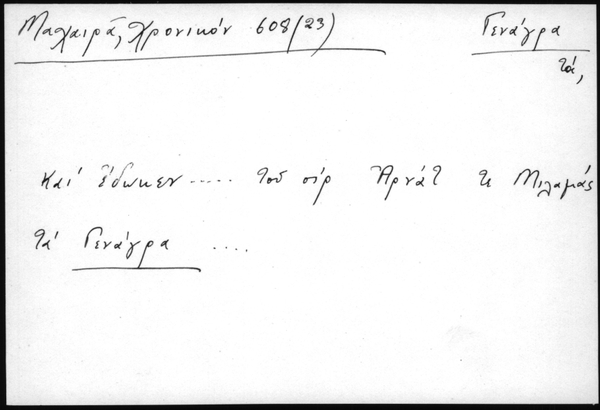 Μαχαιρᾶ, Χρονικόν 608 (23)
Γενάγρα
τά,
καί ἔδωκεν ..... τοῦ σίρ Ἀρνάτ τε Μιλαμάς
τά Γενάγρα ....